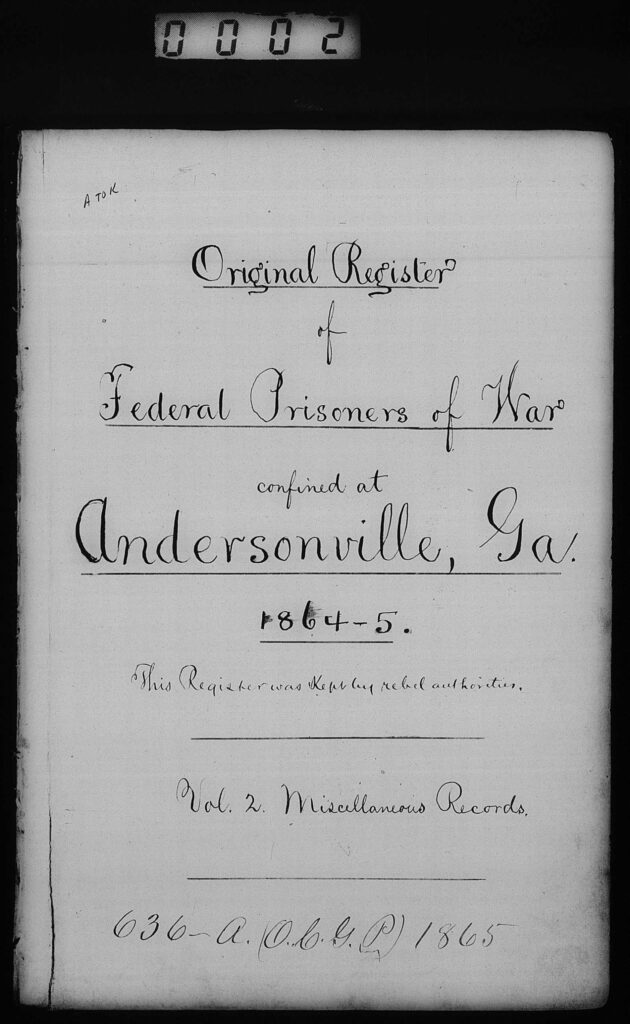 0002
A to K
Original Register
of
Federal Prisoners of War
confined at
Andersonville, Ga.
1864-5.
This Register was kept by rebel authorities.
Vol. 2. Miscellaneous Records.
636-A. (O.C.G.P.) 1865